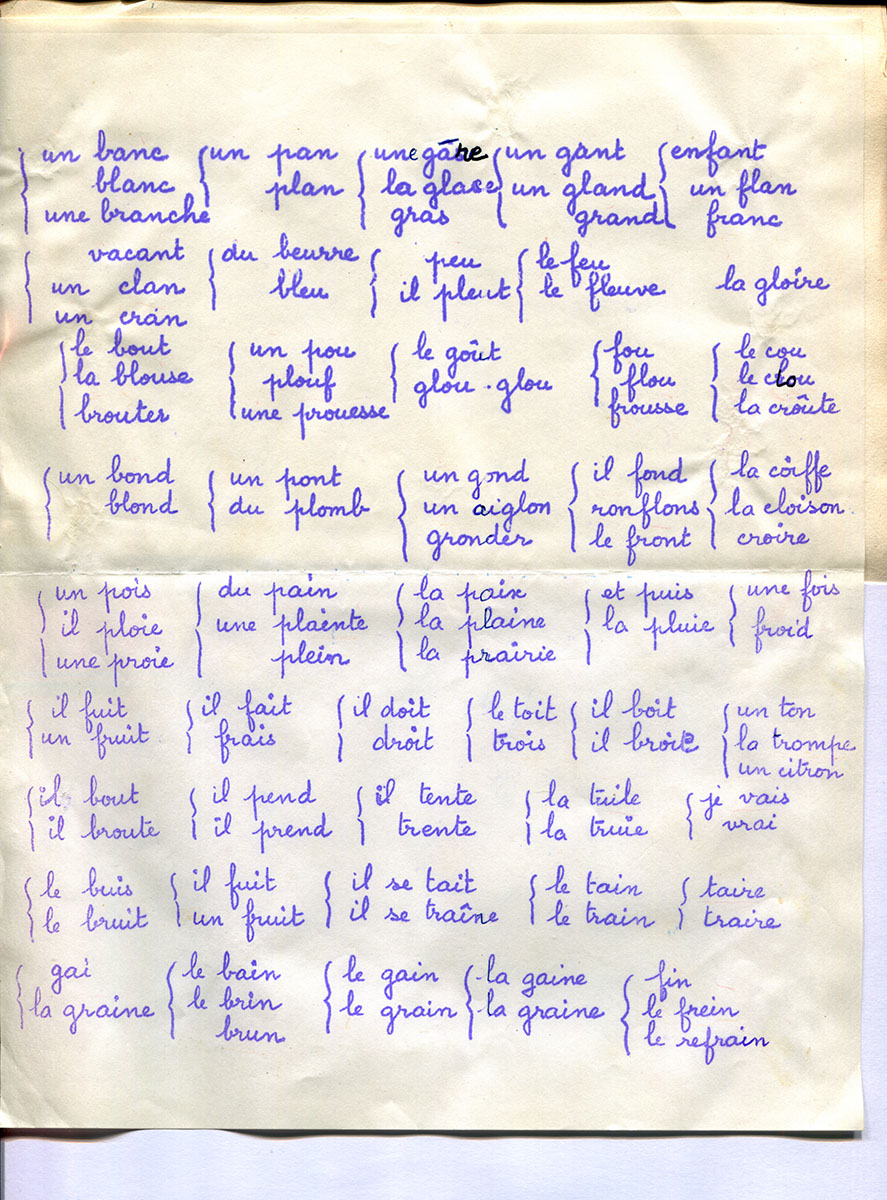 un banc un pan une gâre un gant enfant
blanc plan la glace un gland un flan
une branche gras grand franc
vacant du beurre peu le feu
un clan bleu il pleut le fleuve la gloire
un cran
le bout un pou le goût fou le cou
la blouse plouf glou . glou flou le clou
brouter une prouesse frousse la croûte
un bond un pont un gond il fond la coiffe
blond du plomb un aiglon ronflons la cloison
gronder le front croire
un pois du pain la paix et puis une fois
il ploie une plainte la plaine la pluie froid
une proie plein la prairie
il fuit il fait il doit le toit il boit un ton
un fruit frais droit trois il broie la trompe
un citron
il bout il pend il tente la tuile je vais
il broute il prend trente la truie vrai
le buis il fuit il se tait le tain taire
le bruit un fruit il se traîne le train traire
gai le bain le gain la gaine fin
la graine le brin le grain la graine le frein
brun le refrain